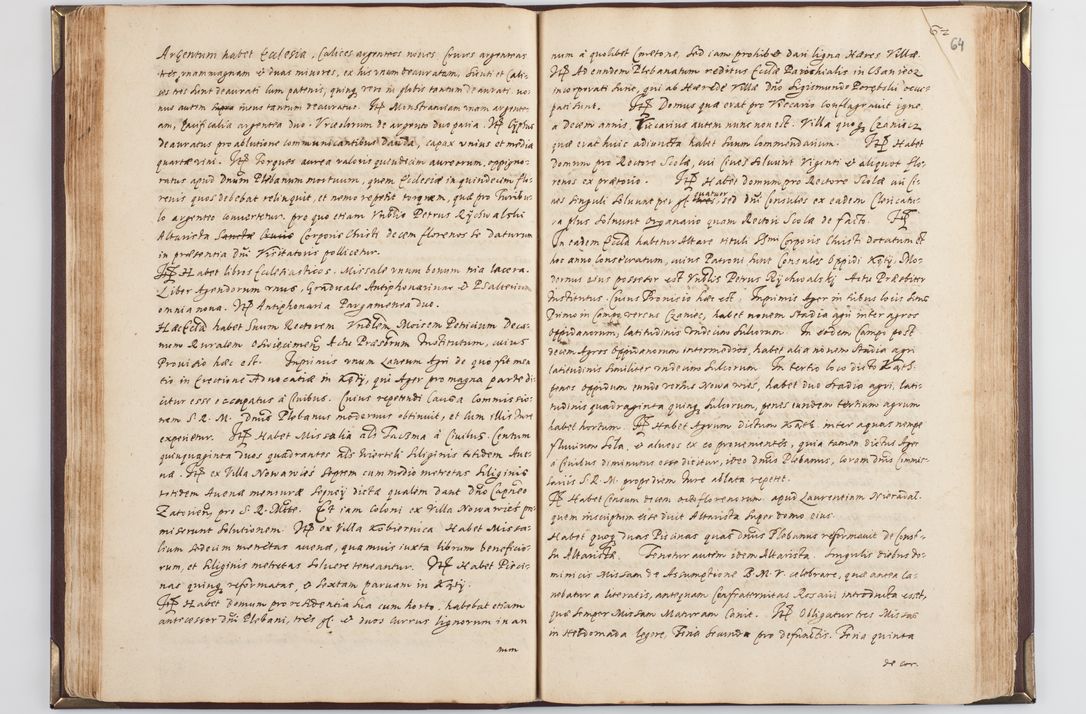 Argentum habet Ecclesia, Calices argenteos novos. Cruces argenteas
tres, unam magnam et duas minores, ex his unam deauratam, sicuti et Cali-
ces tres sunt deaurati cum patenis, quinq rem in plutis tantum deaurati. uo-
nus autem supra intus tantum deauratur. Itē Monstrantiam unam argente-
am, Pacificalia argentea duo. Urceolorum de argento duo paria. Itē Cyphus
deauratus pro ablutione communicantibus danda, capax unius et media
quartæ vini. Itē Torques aurea valoris quindecim aureorum, oppigno-
ratus apud Dnūm Plebanum mortuum, quem Ecclesiæ in quindecim flo-
renis quos debebat relinquit, et nemo repetit torquem, quæ pro Turibu-
lo argenteo convertetur. pro quo etiam Vnblis Petrus Rÿchwalski
Altarista Sanctæ Crucis Corporis Christi decem florenos se daturum
in præsentia dnī Visitatoris pollicetur.
Itē Habet libros Ecclesiasticos. Missale unum bonum tria lacera.
Liber Agendorum unus, Graduale Antiphonarium et Psalterium
omnia nona. Itē Antiphonaria Pargamenea duo.
Hæc Eccla habet Suum Rectorem Vndlem Moisem Peticium Deca-
num Ruralem Osviecimeñ Actu Præsbrum Institutum, cuius
Provisio hæc est. Inprimis unum Laneum Agri de quo fit men-
tio in Erectione Advocatiæ in Kęty, qui Ager pro magna parte di-
citur esse occupatus à Civibus. Cuius repetendi Causa Commissio-
nem S. R. M. Dnūs Plebanus modernus obtinuit, et cum illis Jure
experietur. Itē Habet Missalia als Taczma à Civibus. Centum
quinquaginta duos quadrantes als Wierteli Siliginis totidem Aue-
næ. Itē ex Villa Nowawieś Septem cum medio metretas Siliginis
totidem Auenæ mensuræ Sepney dictæ qualem dant dno Capneo
Zatorieñ, pro S. R. Mtte. Et iam coloni ex Villa Nowawieś pro-
miserunt Solutionem. Itē ex Villa Kobiernica Habet Missa-
lium Sedecim metretas auenæ, quamuis iuxta librum beneficio-
rum, et Siliginis metretas Soluere teneantur. Itē Habet Pisci-
nas quinq reformatas, et Sextam paruam in Kęty.
Itē Habet Domum pro residentia sua cum horto, habebat etiam
antecessor dnī Plebani, tres fl. et duos currus lignorum in an
num
64
num à quolibet Cmetone, Sed iam prohibet dari ligna Hæres Villæ.
Itē Ad eundem Plebanatum reditus Ecclæ Parochialis in Banieoz
incorporati sunt, qui ab Hærede Villæ dno Sigismundo Porębski occu-
pati sunt. Itē Domus quæ erat pro Vicario Conflagravit igne,
a decem annis. Vicarius autem nunc non est. Villa quoq Czaniecz
quæ erat huic adiuncta habet Suum Commendarium. Itē Habet
Domum pro Rectore Scolæ, cui Ciues Soluunt Viginti et aliquot flo-
renos ex prætorio. Itē Habet domum pro Rectore Scolæ cui Ci-
ues Singuli Soluunt per fl quatuor, sed dnī Consules ex eadem Clericatu-
ra plus Soluunt Organario quam Rectori Scolæ de facto. Itē
In eadem Eccla habetur Altare tituli SSmi Corporis Christi dotatum et
hoc anno Consecratum, cuius Patroni sunt Consules Oppidi Kęty. Mo-
dernus eius possessor est Vndlis Petrus Rÿchwalskj Actu Præsbiter
Institutus. Cuius Provisio hæc est, Inprimis Ager in tribus locis Situs
Primo in Campo versus Czaniec, habet nouem Stadia agri inter agros
oppidanorum, latitudinis undecim Sulcorum. In eodem Campi post
decem Agros Oppidanorum intermedios, habet alia nouem Stadia agri
latitudinis Similiter undecim Sulcorum. In tertio loco dicto Kąth.
penes oppidum eundo versus Nowawieś, habet duo Stadia agri, lati-
tudinis quadraginta quinq Sulcorum, penes eundem tertium agrum
habet hortum. Itē Habet Agrum dictum Kąth. inter aquas nempe
fluuium Sola, et alueos ex eo prouenientes, quia tamen dictus Ager
à Civibus diminutus esse dicitur, ideo Dnūs Plebanus, coram Dnīs Commis-
sariis S. R. M. propediem Jure ablata repetet.
Itē Habet Censum decem octo florenorum apud Laurentium Nieradał.
quem inscriptum esse dicit Altarista Super domo eius.
Habet quoq duas Piscinas quas Dnūs Plebanus reformauit de Cons-
su Altaristæ. Tenetur autem idem Altarista. Singulis diebus do-
minicis Missam de Assumptione B. M. V. celebrare, quæ antea ca-
nebatur a literatis, antequam Confraternitas Rosarii introducta esset,
quæ Semper Missam Maturam Canit. Itē Obligatur tres Missas
in Hebdomada legere, Feria Secunda pro defunctis. Feria quinta
de Cor.